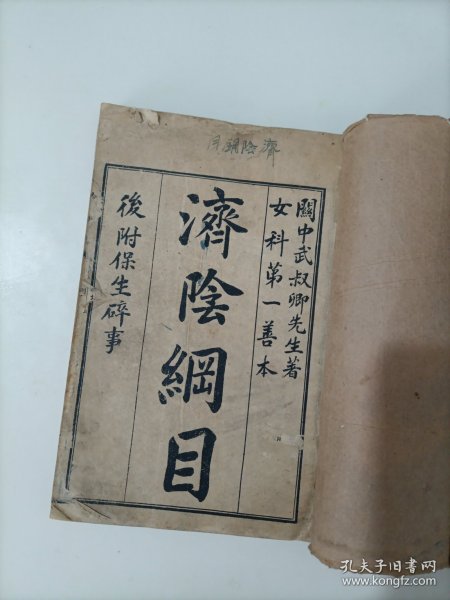 濟陰綱目
關中武叔卿先生著
女科第一善本
濟陰綱目
後附保生碎事
孔夫子旧书网
www.kongfz.com